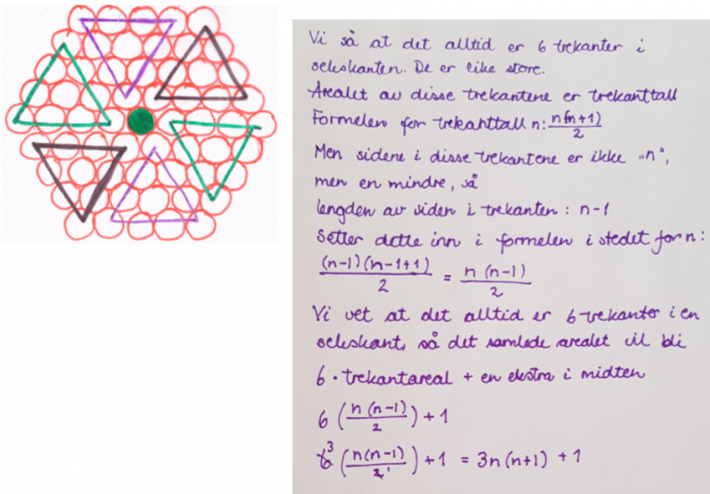 Vi så at det alltid er 6 trekanter i
sekskanten. De er like store.
Arealet av disse trekantene er trekanttall
Formelen for trekanttall n: n(n+1)/2
Men sidene i disse trekantene er ikke "n",
men en mindre, så
lengden av siden i trekanten : n-1
Setter dette inn i formelen i stedet for n:
(n-1)(n-1+1)/2 = n(n-1)/2
Vi vet at det alltid er 6 trekanter i en
sekskant, så det samlede arealet vil bli
6 · trekantareal + en ekstra i midten
6 (n(n-1)/2) + 1
6 3 (n(n-1)/2 1) + 1 = 3n(n+1) + 1